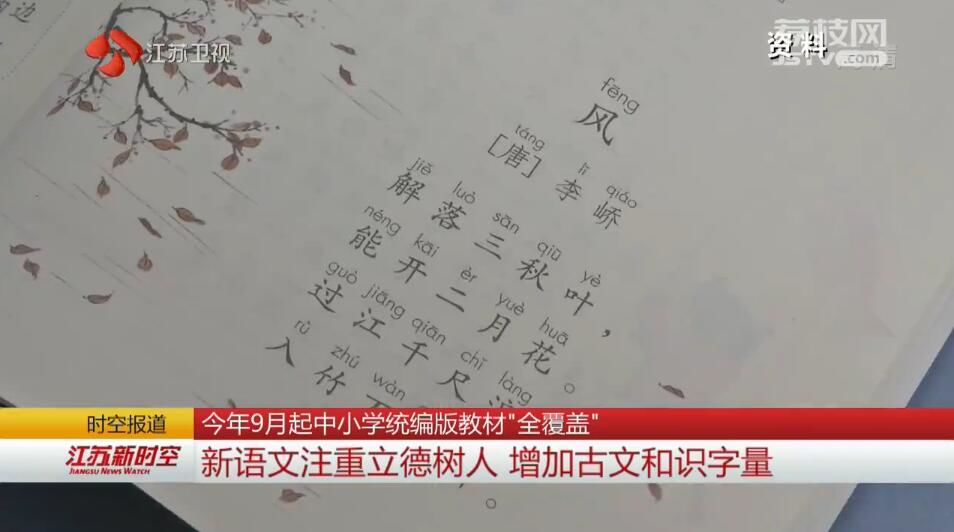 江苏卫视
荔枝网
JSTV.COM
资料
fēng
风
táng lǐ qiáo
[唐] 李 峤
jiě luò sān qiū yè
解落三秋叶，
néng kāi èr yuè huā
能开二月花。
guò jiāng qiān chǐ làng
过江千尺
rù zhú wàn
入竹
时空报道
今年9月起中小学统编版教材"全覆盖"
江苏新时空
JIANGSU NEWS WATCH
新语文注重立德树人 增加古文和识字量